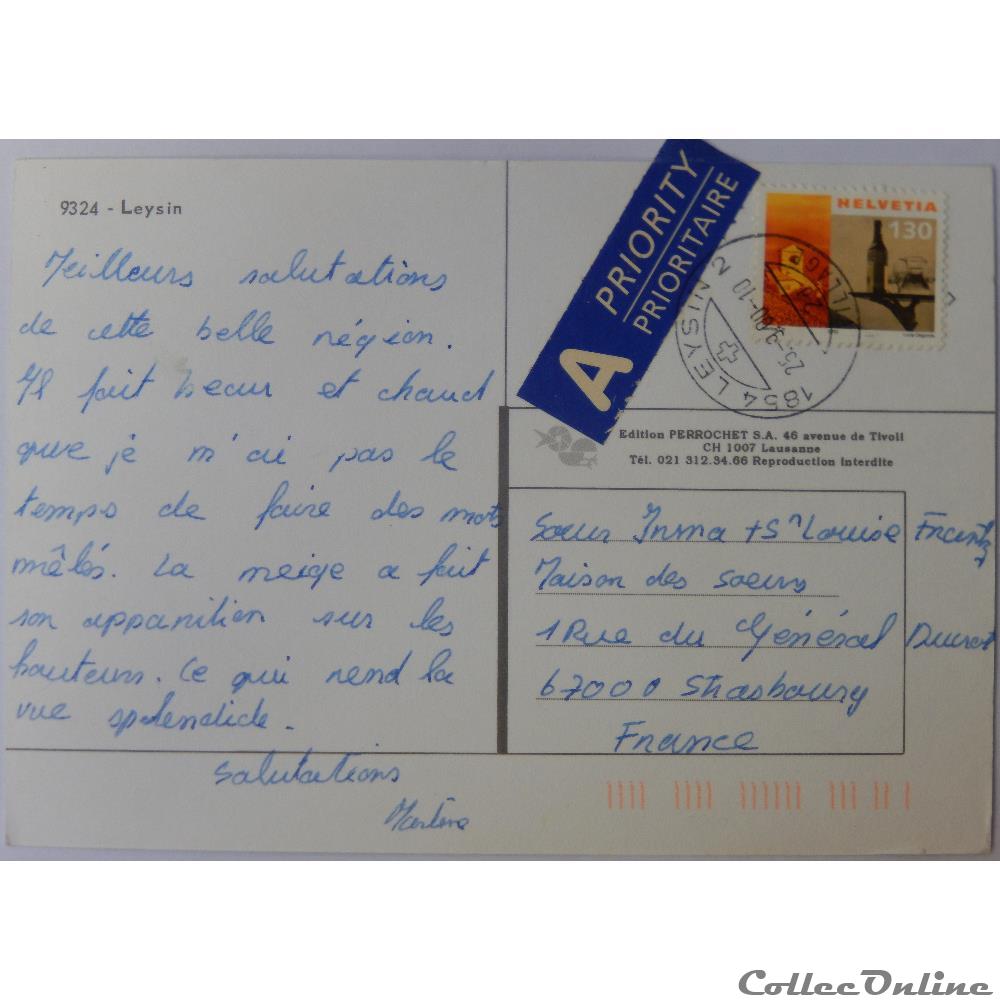 9324 - Leysin
Meilleurs salutations
de cette belle région.
Il fait beau et chaud
que je m'ai pas le
temps de faire des mots
mêlés. La neige a fait
son apparition sur les
hauteurs. Ce qui rend la
vue splendide.
Salutations
Martine
A PRIORITY
PRIORITAIRE
HELVETIA
130
1854 LEYSIN 2 VILLAGE
25-9-00-10
Edition PERROCHET S.A. 46 avenue de Tivoli
CH 1007 Lausanne
Tél. 021 312.34.66 Reproduction interdite
Soeur Inma + Sr Louise Frantz
Maison des soeurs
1 Rue du Général Ducrot
67000 Strasbourg
France
CollecOnline